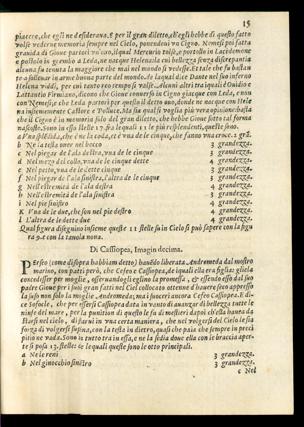 15
piacere, che egli ne desiderava. E per il gran diletto, ch'egli hebbe di questo fatto
volse vederne memoria sempre nel Cielo, ponendovi un Cigno. Nemesi poi fatta
gravida di Gioue partorì un uovo, il qual Mercurio tolse, e portollo in Lacedemone
e postolo in grembo a Leda, ne nacque Helena la cui bellezza senza discrepantia
alcuna fu tenuta la maggiore che mai nel mondo si vedesse. Et tale che fu bastan
te a sollevar in arme buona parte del mondo. de la qual dice Dante nel suo inferno
Helena viddi, per cui tanto reo tempo si volse. Alcuni altri tra i quali Ouidio e
Lattantio Firmiano, dicono che Gioue converso in Cigno giacque con Leda,
con Nemesi; e che Leda partorì per questo il detto uovo, donde ne nacque con Hele
na insiememente Castore e Polluce. Ma sia qual si voglia più vera opinione, basta
che il Cigno è in memoria solo del gran diletto, che hebbe Gioue sotto tal forma
nascosto. Sono in esso stelle 17. fra le quali 11 le più risplendenti, queste sono.
b Ne la testa nero nel becco 3 grandezza.
c Nel piegar de l'ala destra, una de le cinque 3 grandezza.
d Nel mezo del collo, una de le cinque dette 4 grandezza.
e Nel petto, una de le cinque dette 3 grandezza.
f Nel piegar de l'ala sinistra, l'altra de le cinque 3 grandezza.
g Nell'estremità de l'ala destra 4 grandezza.
h Nell'estremità de l'ala sinistra 3 grandezza.
i Nel pie sinistro 4 grandezza.
K Una de le due, che son nel pie destro 4 grandezza.
l L'altra de le dette due 4 grandezza.
Qual figura disegnino insieme queste 11 stelle su in Cielo si può sapere con la figu
ra 9. e con la tavola nona.
Di Cassiopea, Imagin decima.
PErseo (come disopra habbiam detto) havendo liberata Andromeda dal mostro
marino, con patti però, che Cefeo e Cassiopea, de iquali ella era figlia; gliela
concedesser per moglie, osservandogli egli no la promessa, & essendo esso dal suo
padre Gioue per i suoi gran fatti nel Ciel collocato ottenne d'havere seco appresso
la suso non solo la moglie Andromeda; ma i suoceri ancora Cefeo e Cassiopea. E di-
ce Sofocle, che per essersi Cassiopea data in vanto di avanzar di bellezza tutte le
ninfe del mare, per la punition di questo le fu di mestieri dapoi ch'ella haueva da
starsi nel cielo, di starvi in una certa maniera, che nel volgersi del Cielo le sia
forza di volgersi supina, con la testa in dietro, quasi che paia che sempre in preci
pitio ne vada. Sono in tutto tra in essa, e ne la sedia dove ella con le braccia aper-
te si posa 13. stelle; & le quali queste sono le otto principali.
a Ne le reni 3 grandezza.
b Nel ginocchio sinistro 3 grandezza.
c Nel